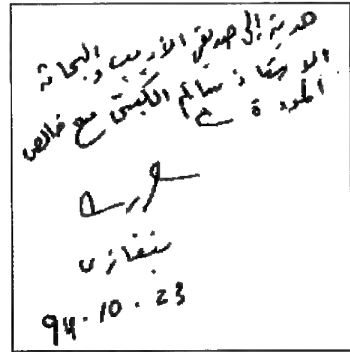 هدية إلى صديقي الأديب والبحاثة
الأستاذ سالم الكبتي مع خالص
المودة
بنغازى
94.10.23